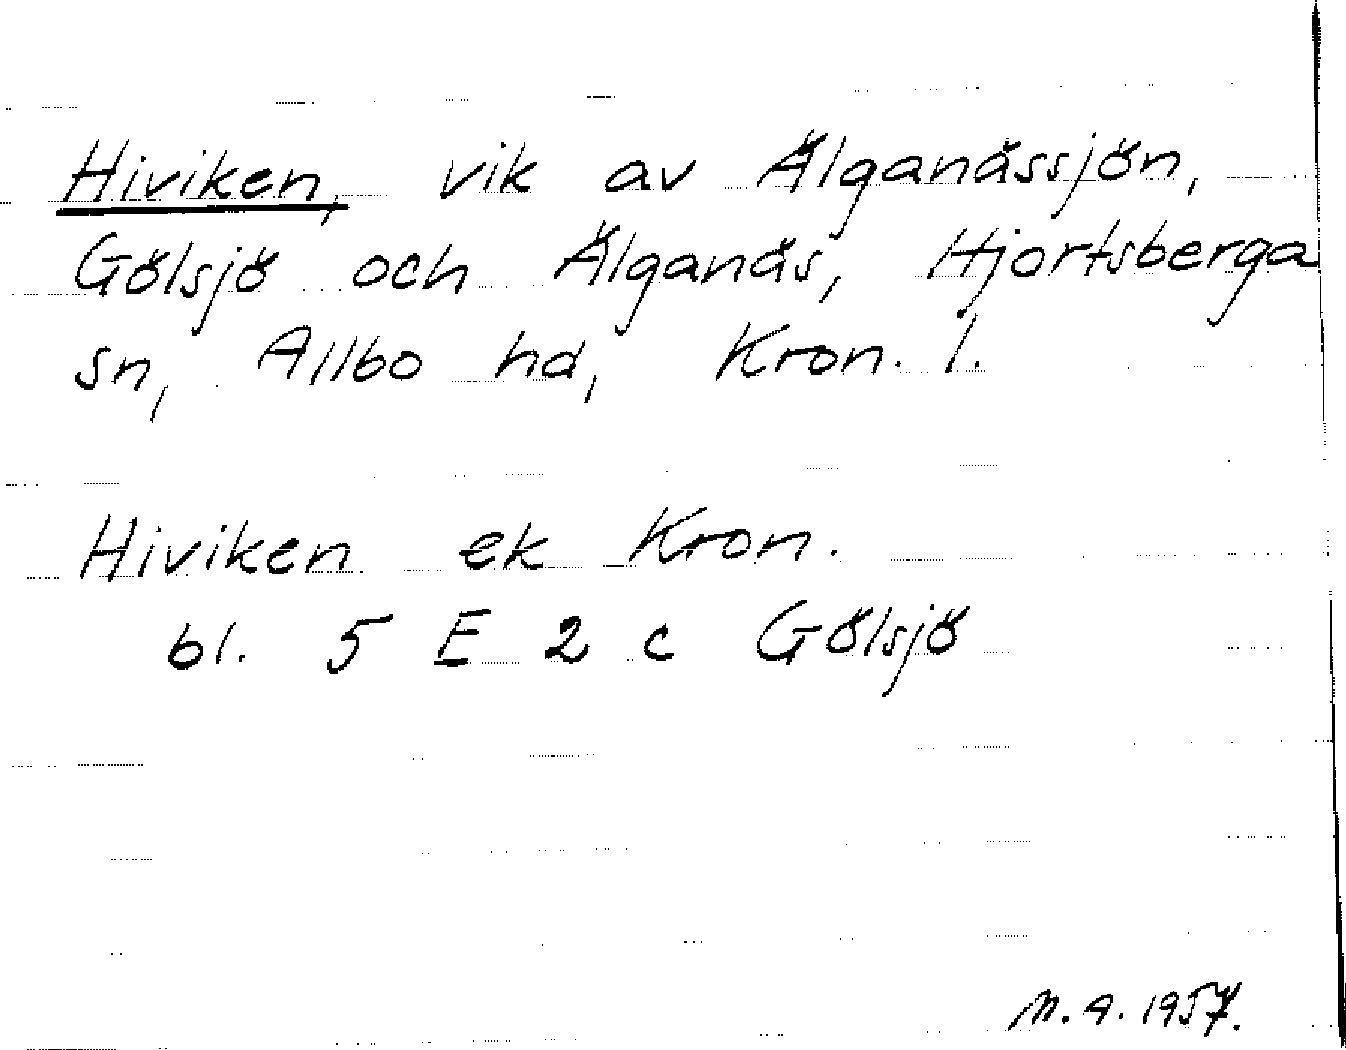 Hiviken, vik av Älganässjön,
Gölsjö och Älganäs, Hjortsberga
sn, Allbo hd, Kron. l.
Hiviken ek Kron.
bl. 5 E 2 c Gölsjö
M. A. 1957.